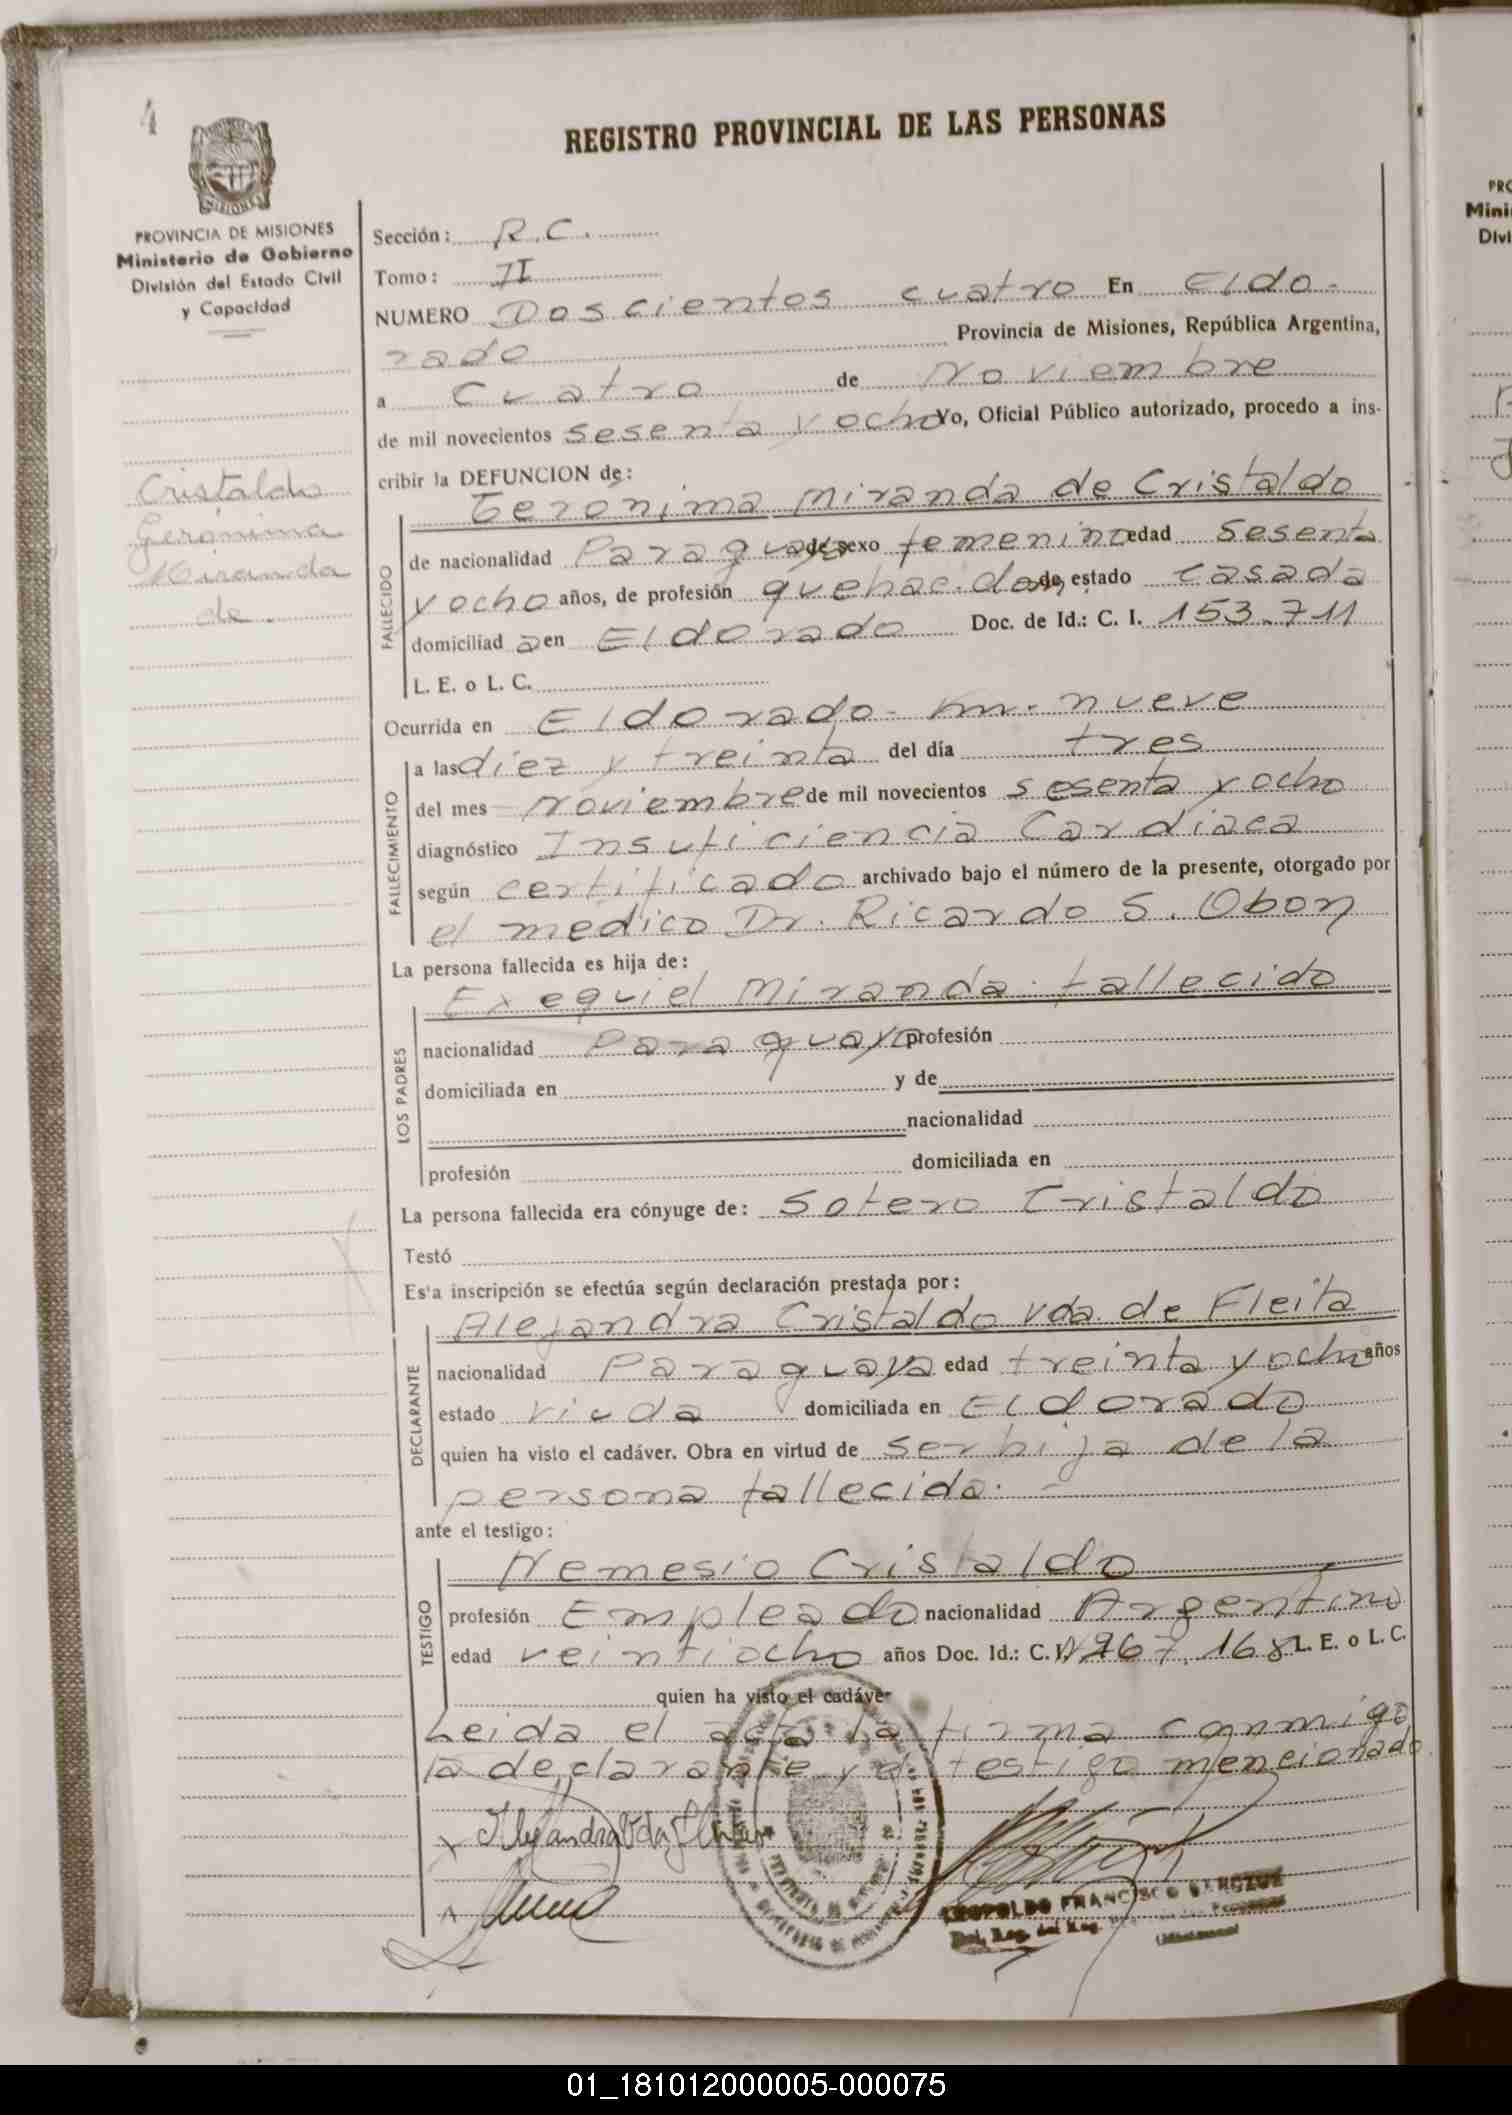 4
REGISTRO PROVINCIAL DE LAS PERSONAS
MISIONES
PROVINCIA DE MISIONES
Ministerio de Gobierno
División del Estado Civil
y Capacidad
Cristaldo
Gerónima
Miranda
de.
Sección: R.C.
Tomo: II
NUMERO Doscientos cuatro En Eldo-
rado Provincia de Misiones, República Argentina,
a cuatro de noviembre
de mil novecientos sesenta y ocho Yo, Oficial Público autorizado, procedo a ins-
cribir la DEFUNCION de:
Gerónima Miranda de Cristaldo
FALLECIDO
de nacionalidad Paraguaya de sexo femenino edad sesenta
y ocho años, de profesión quehac. dom, de estado casada
domiciliad a en Eldorado Doc. de Id.: C. I. 153.711
L. E. o L. C.
Ocurrida en Eldorado- km. nueve
FALLECIMIENTO
a las diez y treinta del día tres
del mes noviembre de mil novecientos sesenta y ocho
diagnóstico Insuficiencia Cardiaca
según certificado archivado bajo el número de la presente, otorgado por
el medico Dr. Ricardo S. Obon
La persona fallecida es hija de:
Exequiel Miranda. fallecido
LOS PADRES
nacionalidad Paraguayo profesión
domiciliada en y de
nacionalidad
profesión domiciliada en
La persona fallecida era cónyuge de: Sotero Cristaldo
Testó
Esta inscripción se efectúa según declaración prestada por:
Alejandra Cristaldo Vda. de Fleita
DECLARANTE
nacionalidad Paraguaya edad treinta y ocho años
estado viuda domiciliada en Eldorado
quien ha visto el cadáver. Obra en virtud de ser hija de la
persona fallecida. -
ante el testigo:
Nemesio Cristaldo
TESTIGO
profesión Empleado nacionalidad Argentino
edad veintiocho años Doc. Id.: C. I. 168 L. E. o L. C.
quien ha visto el cadáver
Leida el acta la firma conmigo
la declarante y el testigo mencionado.
x Alejandra Vda
LEOPOLDO FRANCISCO
PRO
Mini
Divi
01_181012000005-000075